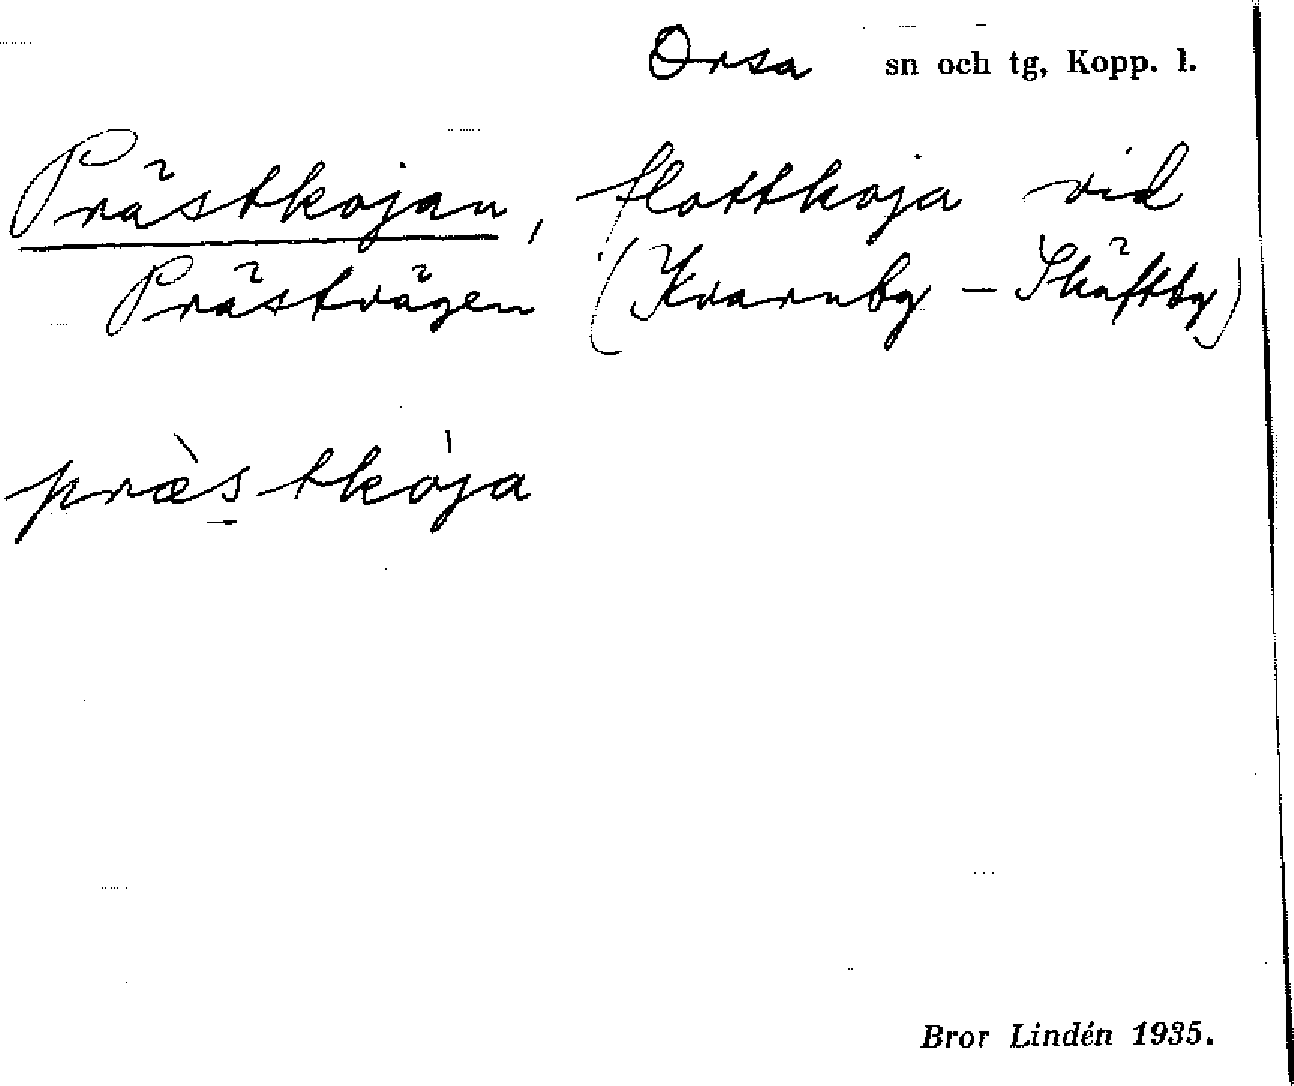 Orsa sn och tg, Kopp. l.
Prästkojan, flottkoja vid
Prästvägen (Kvarnby – Skäftby)
præ̀stkója
Bror Lindén 1935.